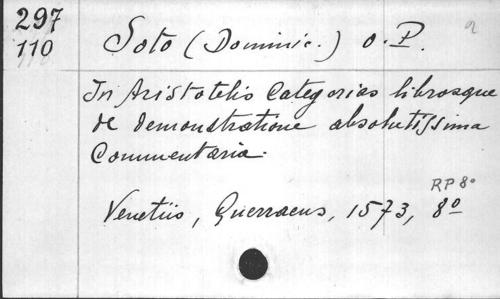 297
110
Soto (Dominic.) O. P.
2
In Aristotelis Categorias librosque
de demonstratione absolutissima
Commentaria.
RP 8º
Venetiis, Guerraeus, 1573, 8º